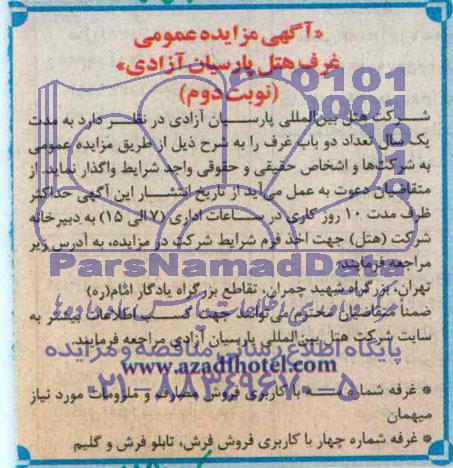 «آگهی مزایده عمومی
غرف هتل پارسیان آزادی»
(نوبت دوم)
شرکت هتل بین‌المللی پارسیان آزادی در نظر دارد به مدت
یک سال تعداد دو باب غرف را به شرح ذیل از طریق مزایده عمومی
به شرکت‌ها و اشخاص حقیقی و حقوقی واجد شرایط واگذار نماید. از
متقاضیان دعوت به عمل می‌آید از تاریخ انتشار این آگهی حداکثر
ظرف مدت ۱۰ روز کاری در ساعات اداری (۷ الی ۱۵) به دبیرخانه
شرکت (هتل) جهت اخذ فرم شرایط شرکت در مزایده، به آدرس زیر
مراجعه فرمایند:
ParsNamadData
تهران، بزرگراه شهید چمران، تقاطع بزرگراه یادگار امام(ره)
ضمناً متقاضیان محترم می‌توانند جهت کسب اطلاعات بیشتر به
سایت شرکت هتل بین‌المللی پارسیان آزادی مراجعه فرمایند.
پایگاه اطلاع رسانی مناقصه و مزایده
www.azadihotel.com
۰۲۱-۸۸۳۴۹۶۷۰-۵
* غرفه شماره سه با کاربری فروش مصارف و ملزومات مورد نیاز
میهمان
* غرفه شماره چهار با کاربری فروش فرش، تابلو فرش و گلیم